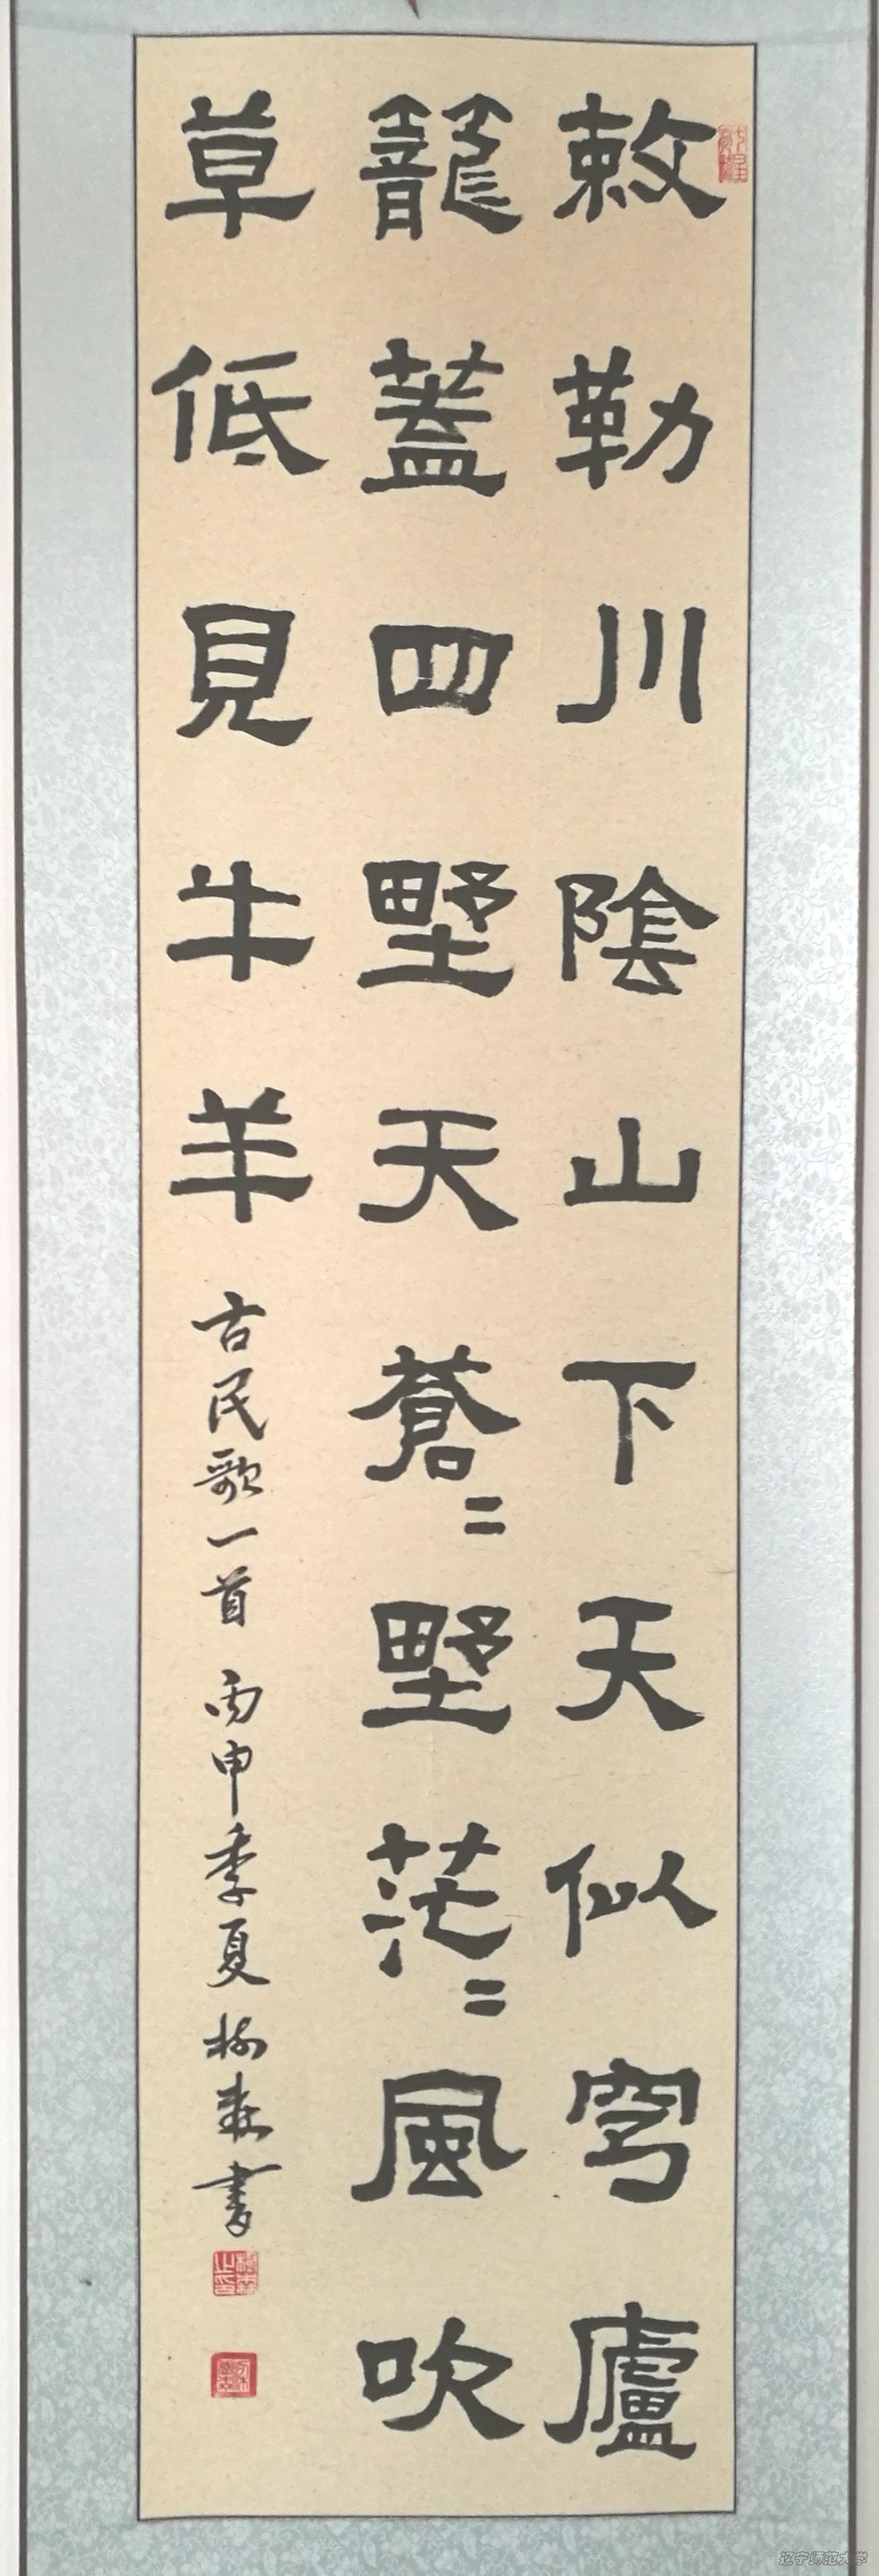 敕勒川陰山下天似穹廬
籠蓋四壄天蒼〻壄茫〻風吹
草低見牛羊
古民歌一首 丙申季夏 樹森書
辽宁师范大学